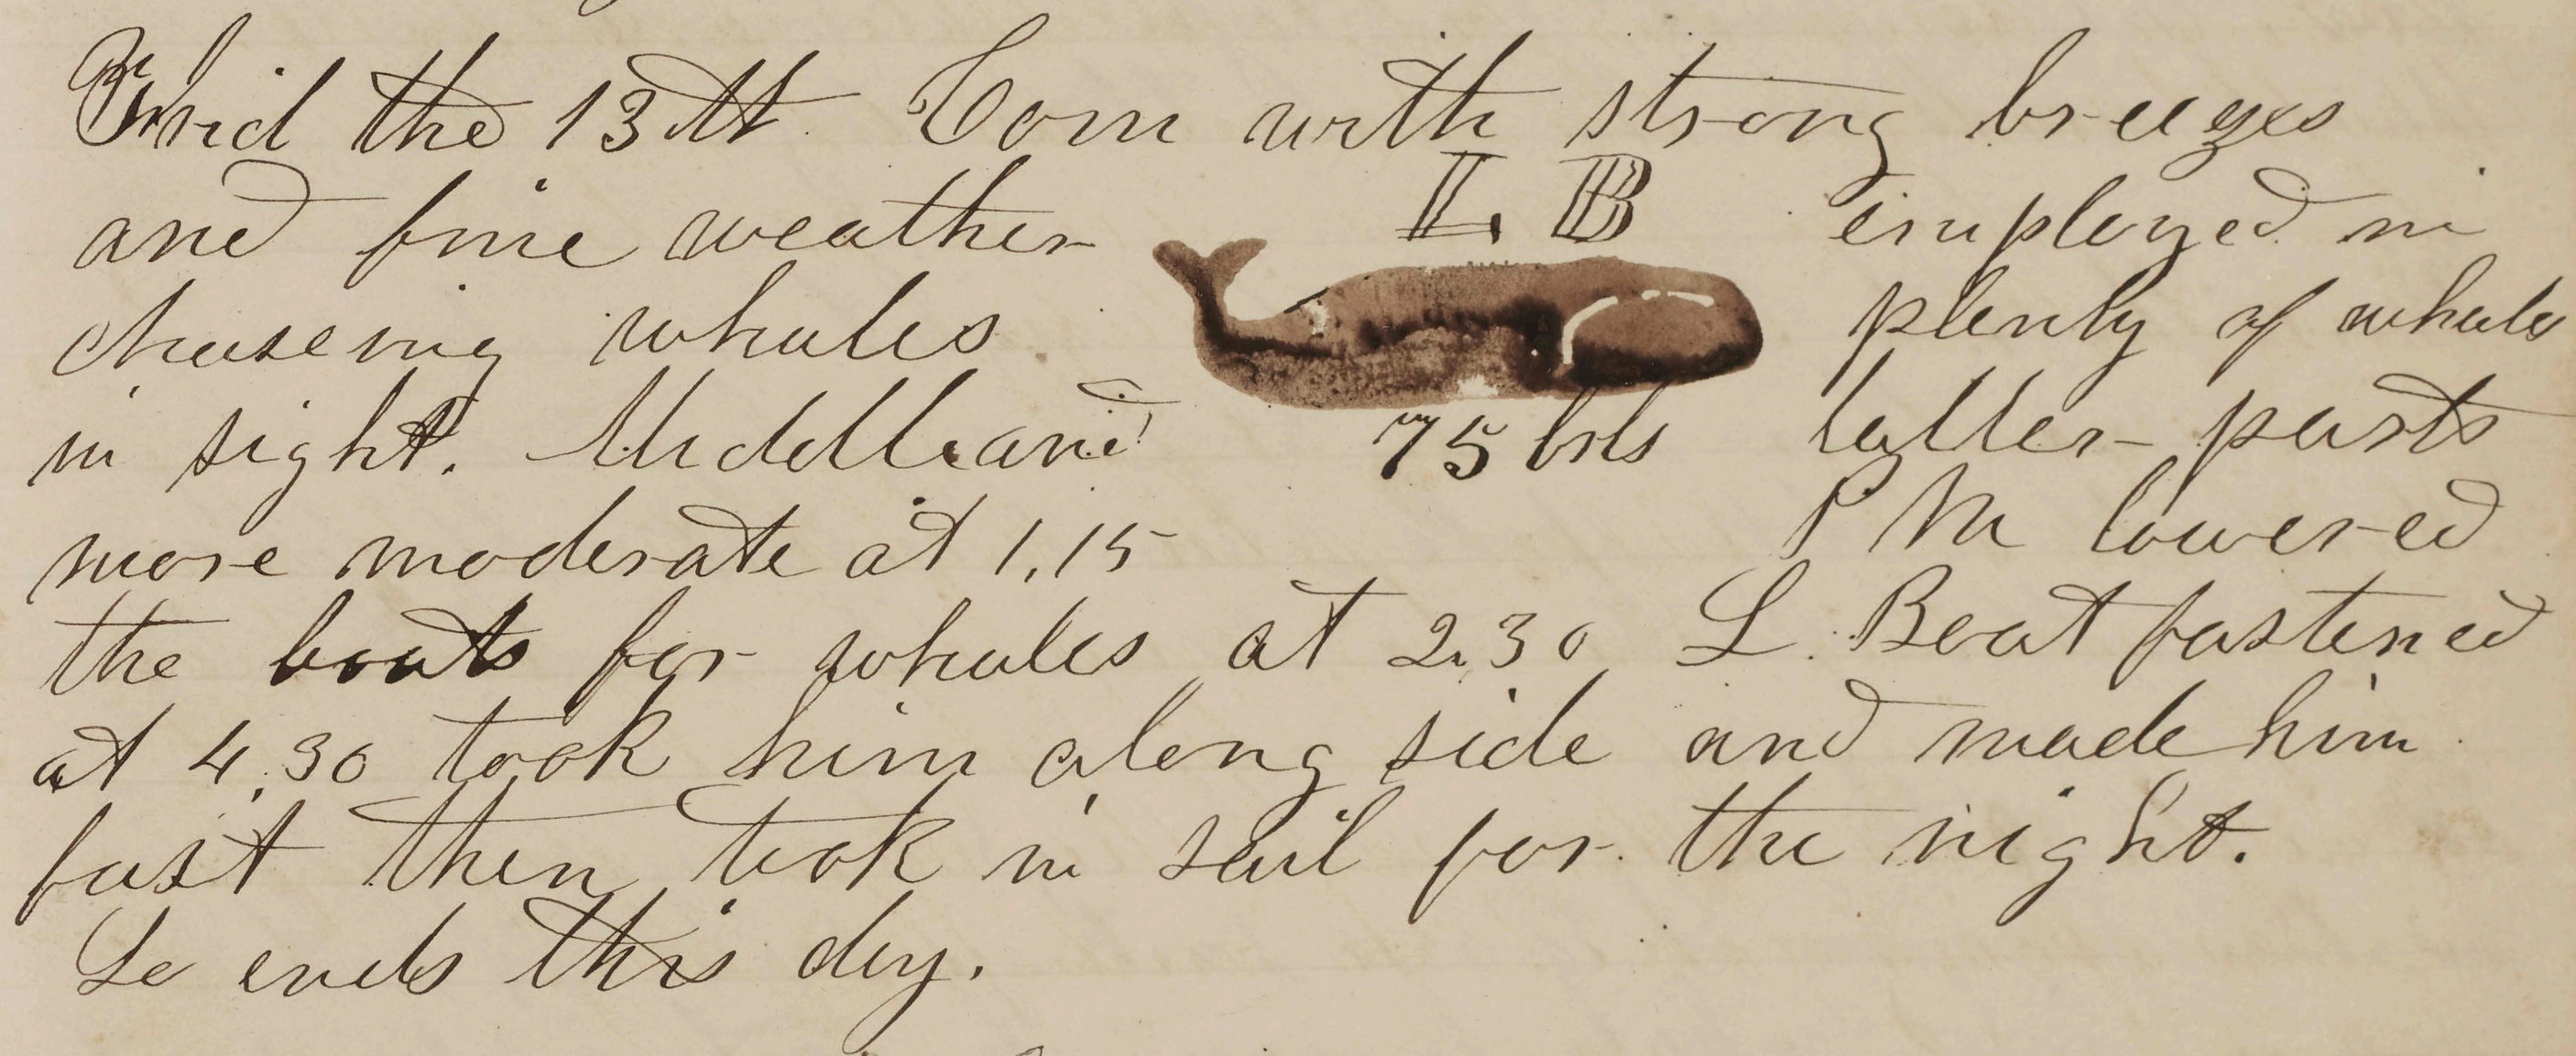 Frid the 13th Com with strong breezes
L B
and fine weather employed in
chaseing whales plenty of whales
in sight. Middle and latter parts
75 brls
more moderate at 1,15 P M lowered
the boats for whales at 2,30 L. Boat fastened
at 4,30 took him along side and made him
fast then took in sail for the night.
So ends this day.